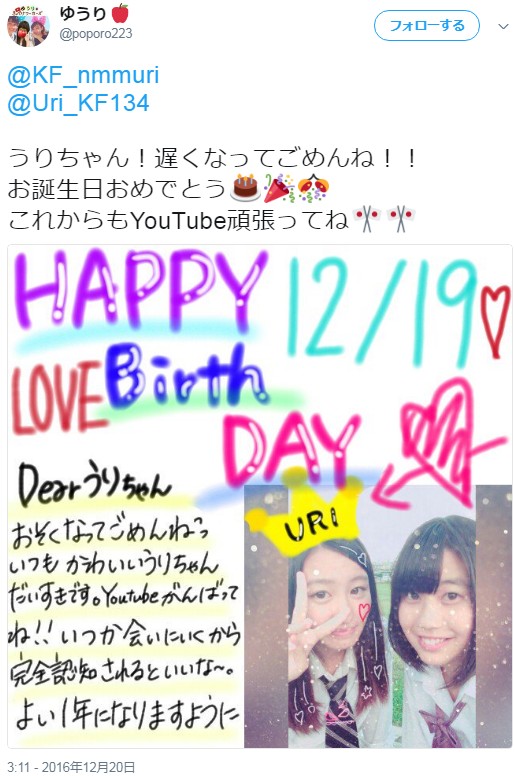 ゆうり🍎
@poporo223
フォローする
@KF_nmmuri
@Uri_KF134
うりちゃん！遅くなってごめんね！！
お誕生日おめでとう🎂🎉🎊
これからもYouTube頑張ってね🎌🎌
HAPPY 12/19
LOVE Birth
DAY
URI
Dearうりちゃん
おそくなってごめんねっ
いつもかわいいうりちゃん
だいすきです。Youtubeがんばって
ね!!いつか会いにいくから
完全認知されるといいな〜。
よい1年になりますように
3:11 - 2016年12月20日